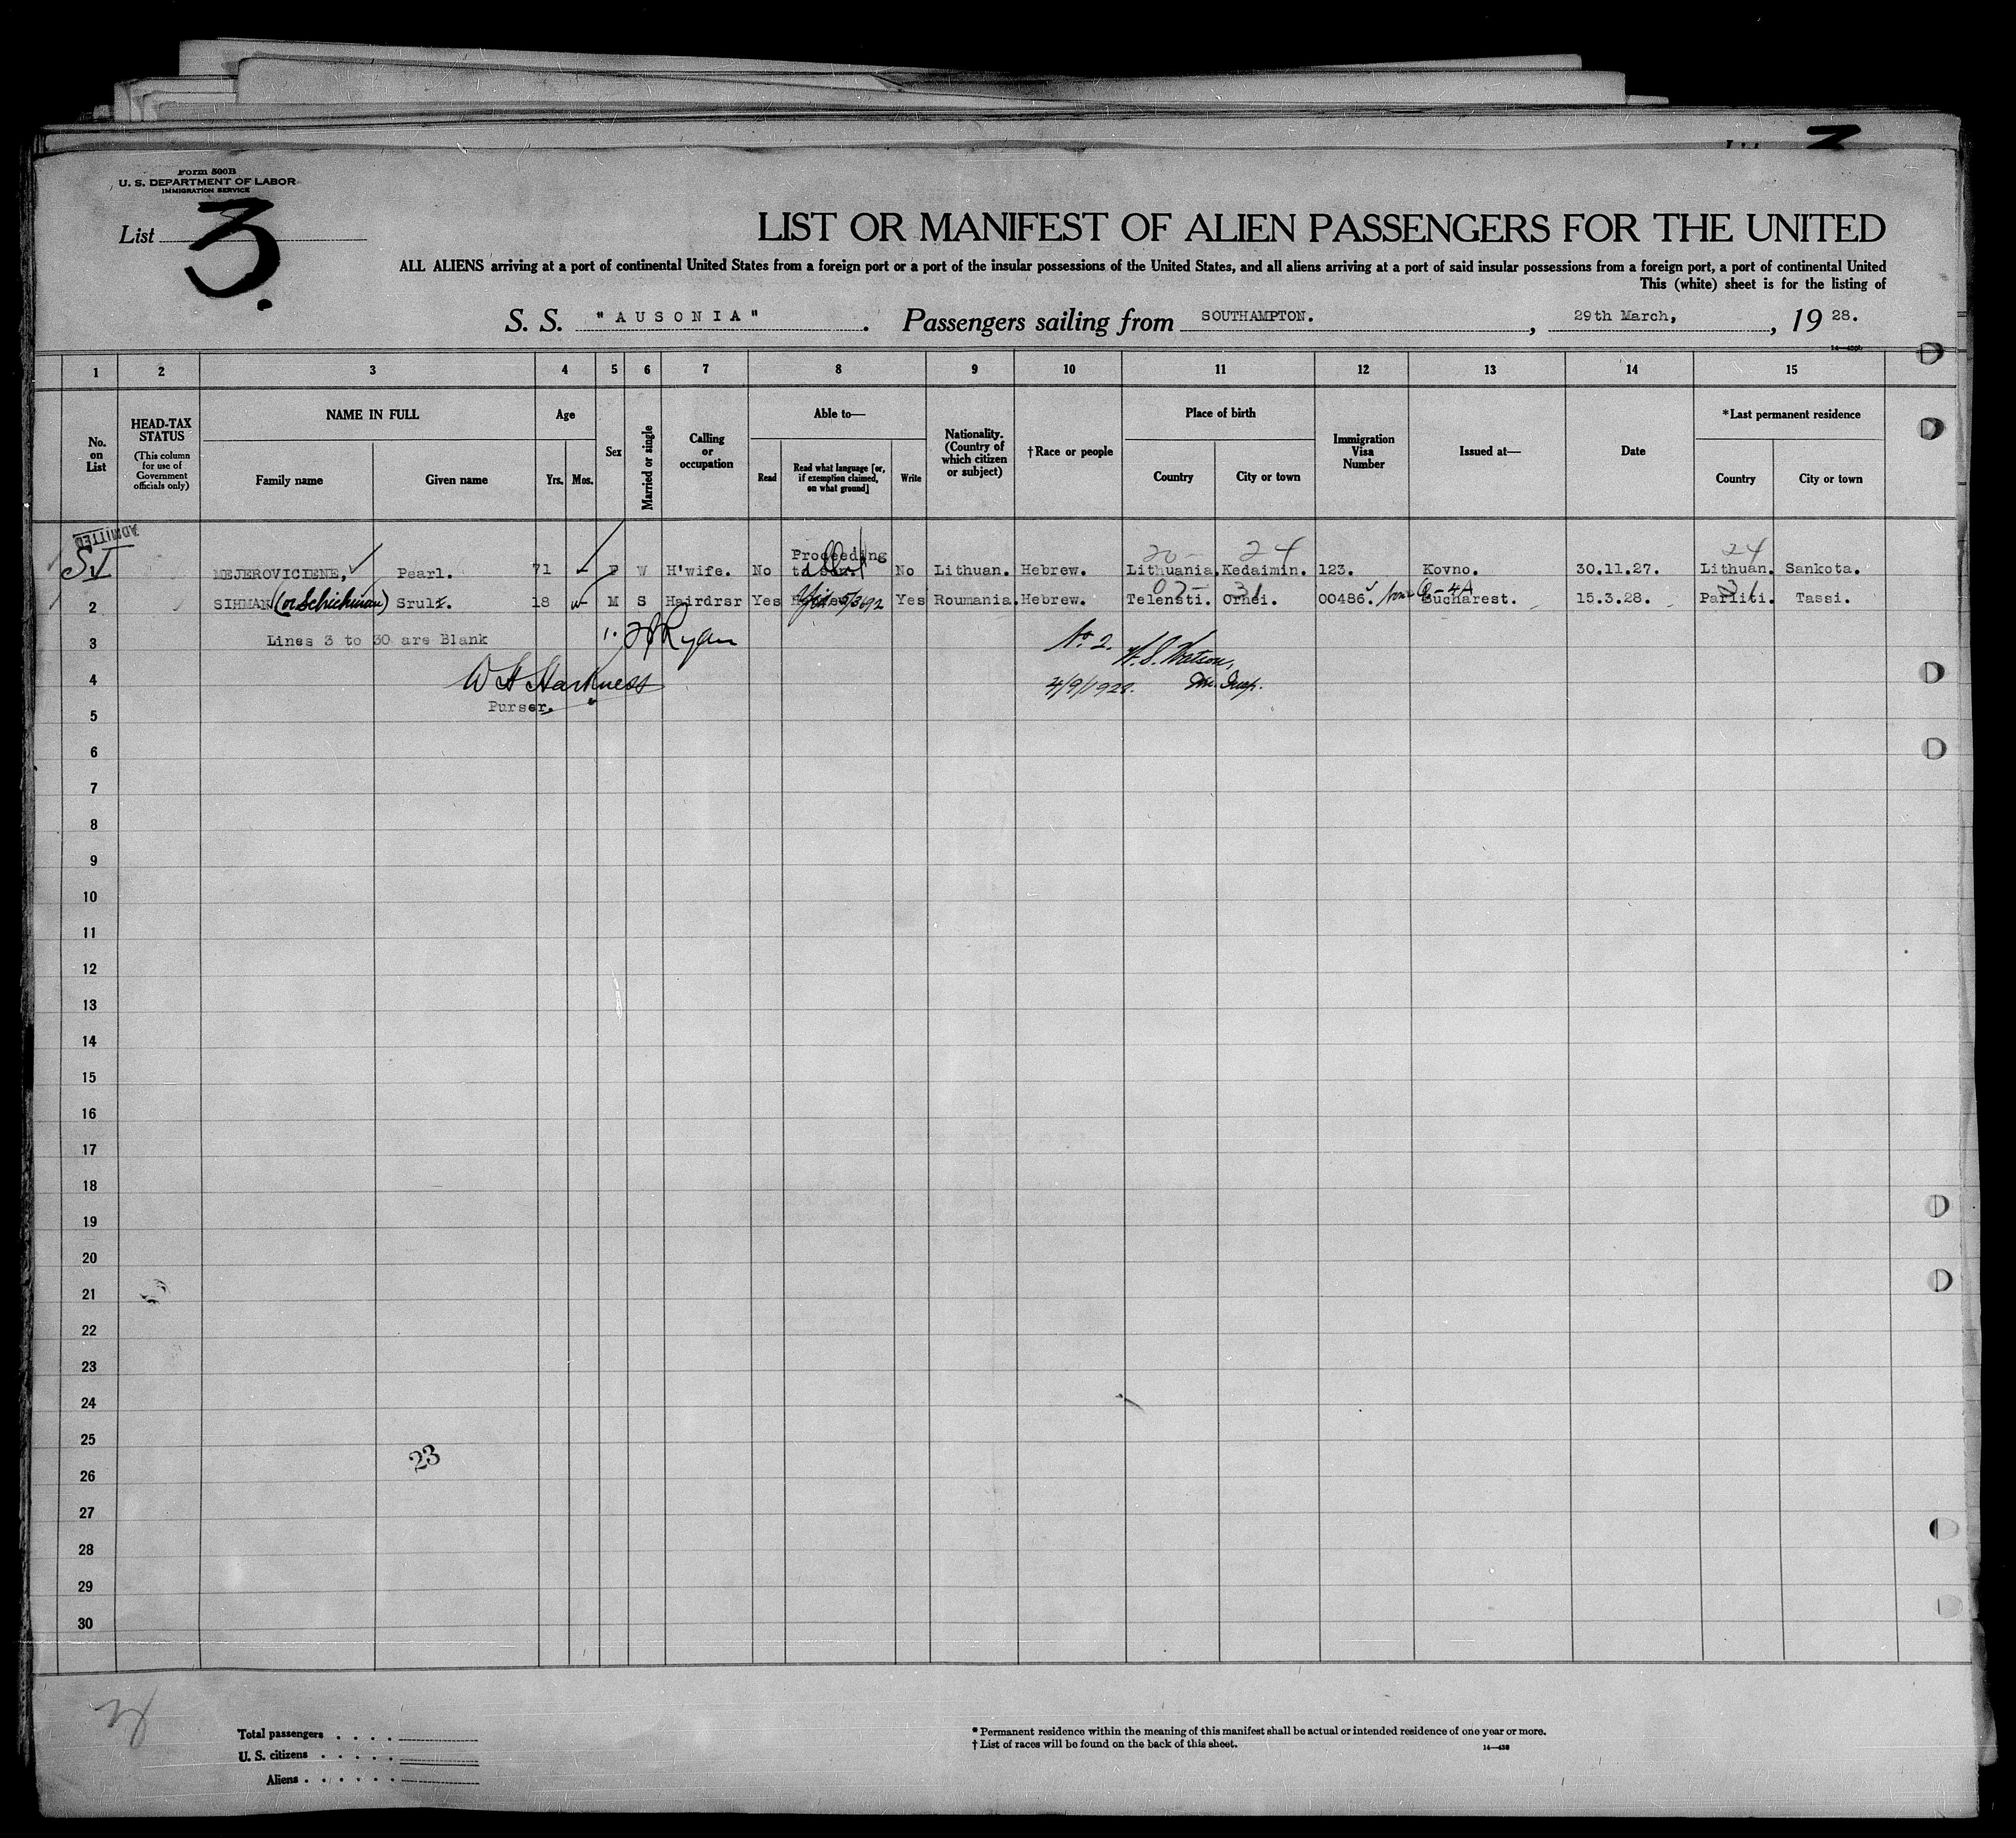 Form 500B
U. S. DEPARTMENT OF LABOR
IMMIGRATION SERVICE
List 3.
LIST OR MANIFEST OF ALIEN PASSENGERS FOR THE UNITED
ALL ALIENS arriving at a port of continental United States from a foreign port or a port of the insular possessions of the United States, and all aliens arriving at a port of said insular possessions from a foreign port, a port of continental United
This (white) sheet is for the listing of
S. S. "AUSONIA". Passengers sailing from SOUTHAMPTON. , 29th March, , 19 28.
1 2 3 4 5 6 7 8 9 10 11 12 13 14 15
No. on List
HEAD-TAX STATUS
(This column for use of Government officials only)
NAME IN FULL
Family name Given name
Age
Yrs. Mos.
Sex
Married or single
Calling or occupation
Able to—
Read
Read what language [or, if exemption claimed, on what ground]
Write
Nationality. (Country of which citizen or subject)
†Race or people
Place of birth
Country City or town
Immigration Visa Number
Issued at—
Date
*Last permanent residence
Country City or town
ADMITTED
20- 24 24
Proceeding
SI MEJEROVICIENE, Pearl. 71 F W H'wife. No to son. No Lithuan. Hebrew. Lithuania. Kedaimin. 123. Kovno. 30.11.27. Lithuan. Sankota.
07- 31 31
2 SIHMAN (or Schichman) Srul. 18 M S Hairdrsr Yes Yes Roumania. Hebrew. Telensti. Orhei. 00486. Bucharest. 15.3.28. Parliti. Tassi.
3 Lines 3 to 30 are Blank 1. Ryan No 2.
W. S. Watson,
4 W H Harkness 4/9/1928. Insp.
Purser.
5
6
7
8
9
10
11
12
13
14
15
16
17
18
19
20
21
22
23
24
25
23
26
27
28
29
30
Total passengers . . . .
U. S. citizens . . . . .
Aliens . . . . . .
* Permanent residence within the meaning of this manifest shall be actual or intended residence of one year or more.
† List of races will be found on the back of this sheet.
14—438